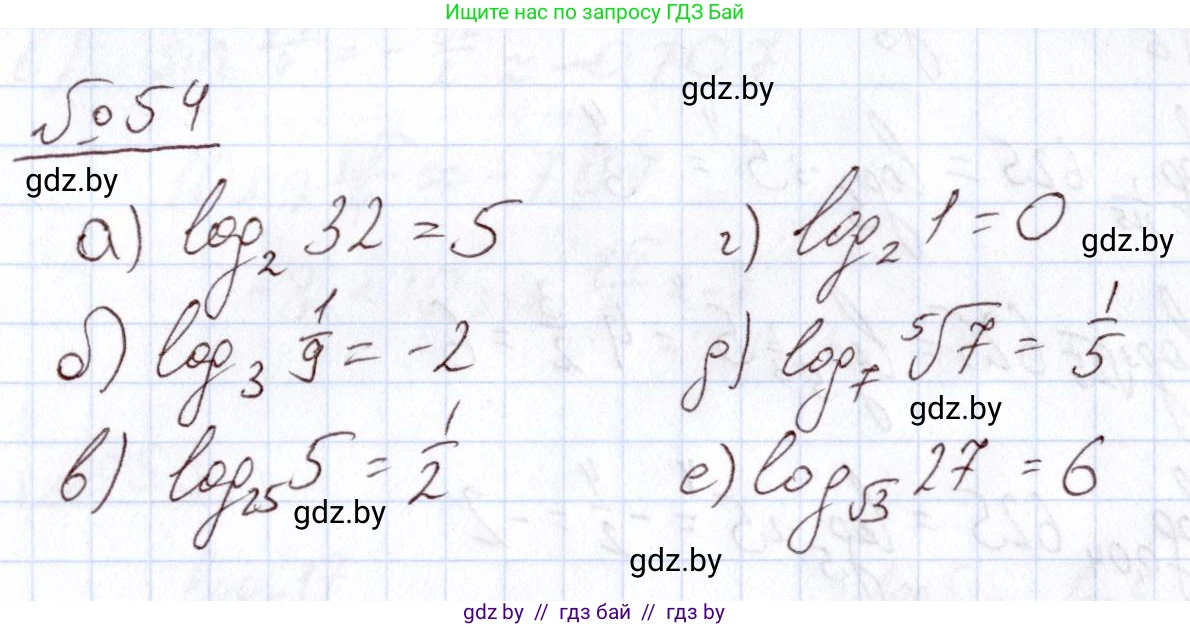 Ищите нас по запросу ГДЗ Бай
№ 54
gdz.by
gdz.by
а) log₂ 32 = 5
г) log₂ 1 = 0
gdz.by
б) log₃ 1/9 = -2
д) log₇ ⁵√7 = 1/5
gdz.by
в) log₂₅ 5 = 1/2
е) log_√3 27 = 6
gdz.by
gdz.by
gdz by // гдз бай // гдз by